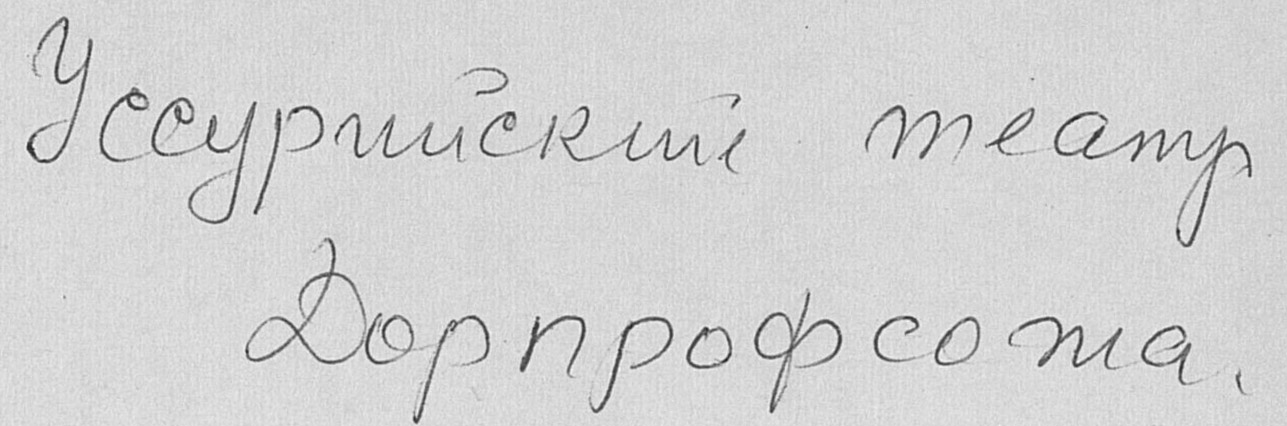 Уссурийский театр
Дорпрофсожа.